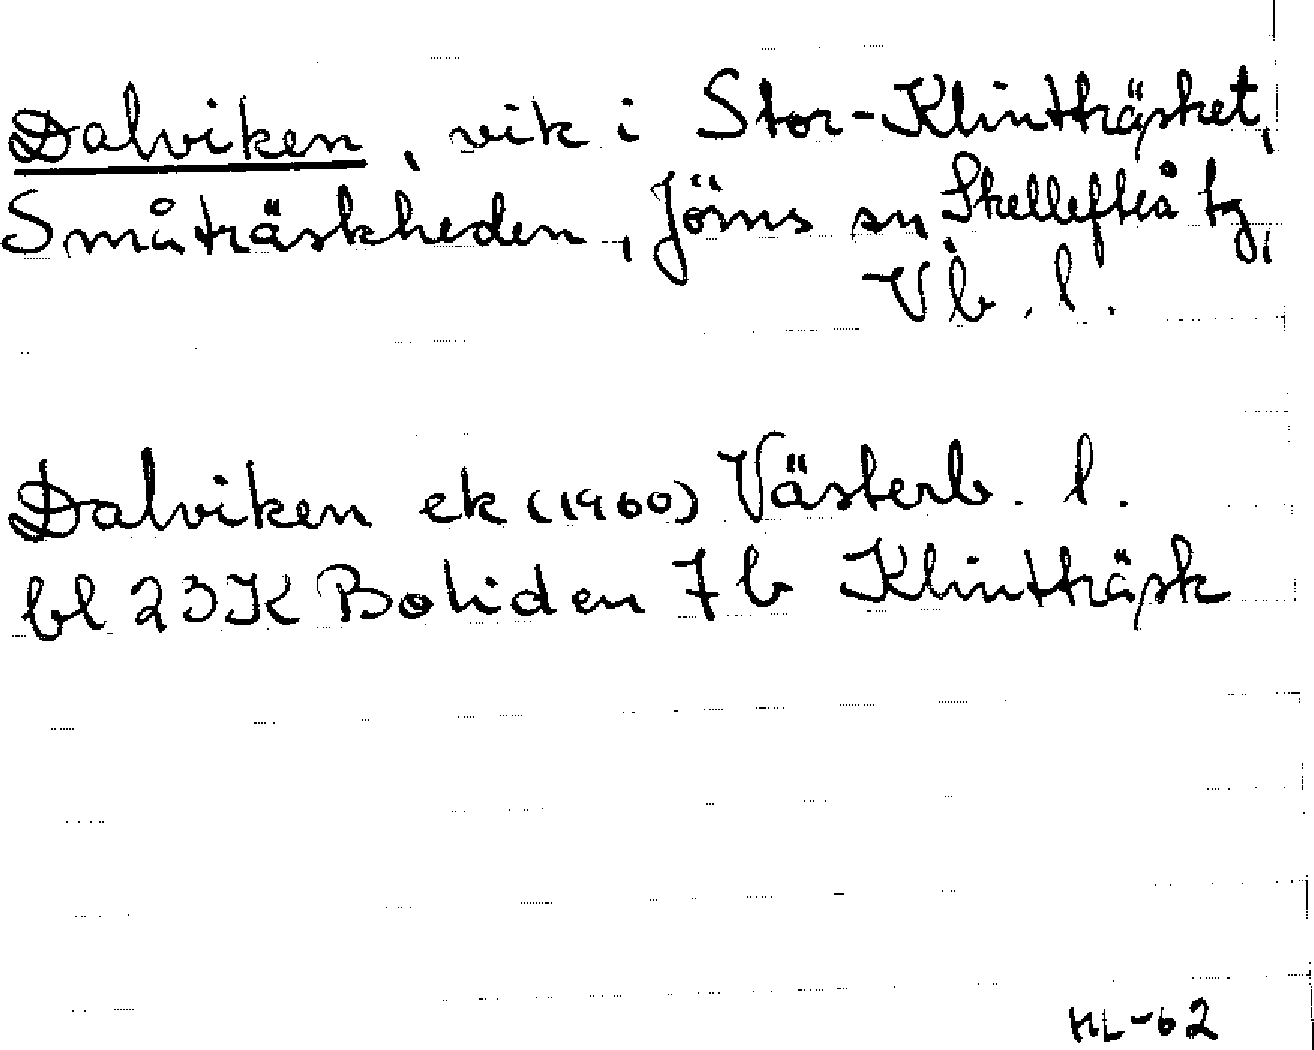 Dalviken, vik i Stor-Klintträsket,
Småträskheden, Jörns sn, Skellefteå tg,
Vb. l.
Dalviken ek (1960) Västerb. l.
bl 23K Boliden 7b Klintträsk
HL-62